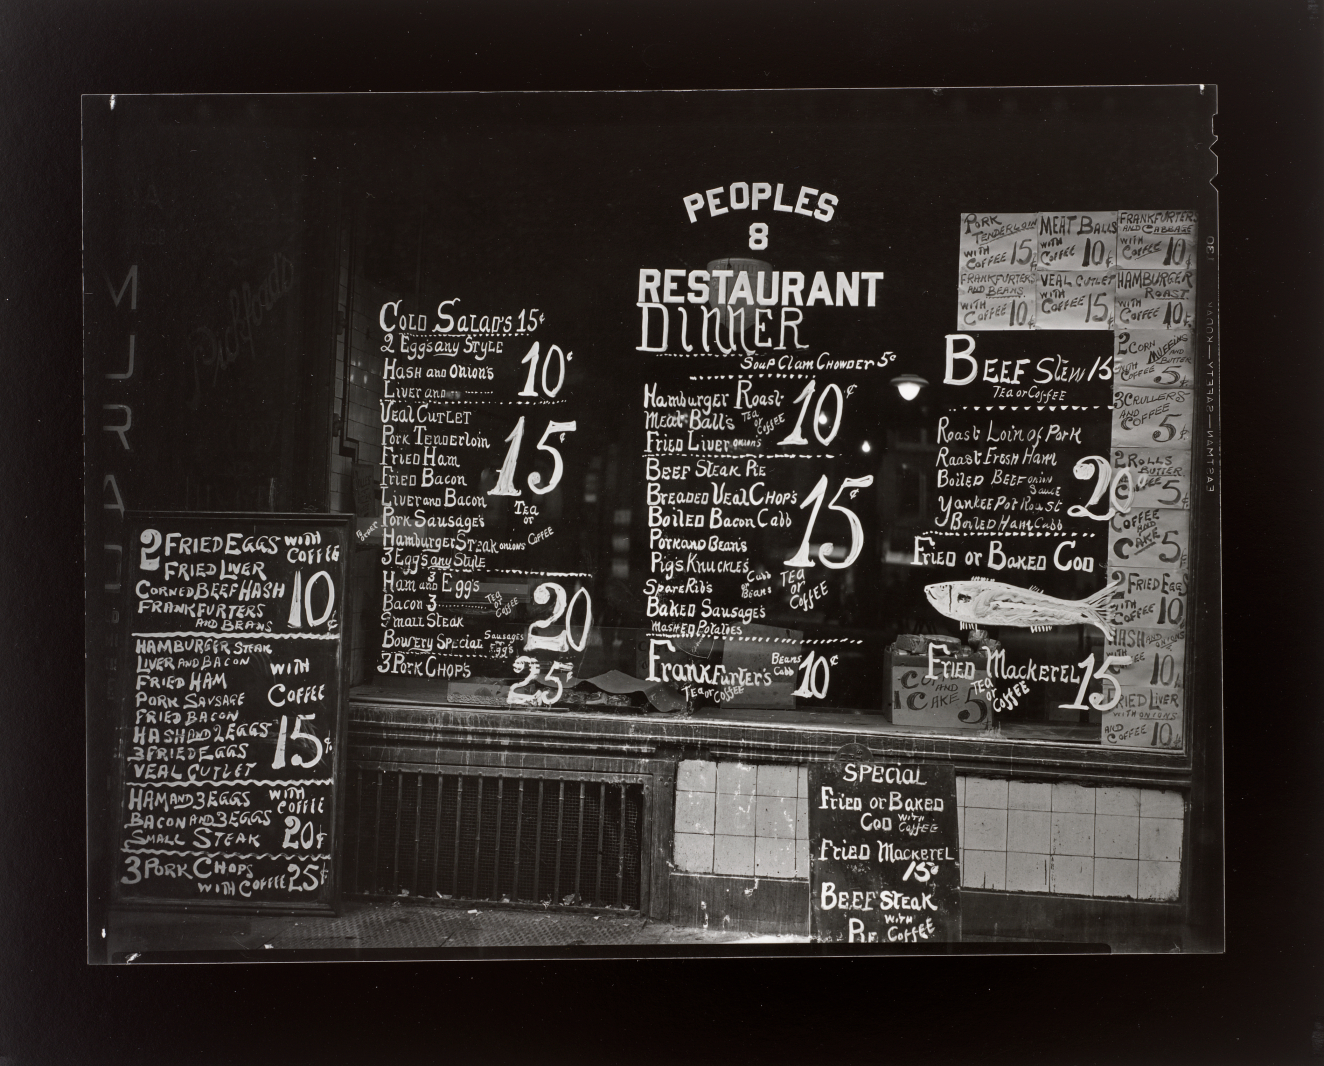 PEOPLES
8
RESTAURANT
DINNER
Soup Clam Chowder 5¢
Hamburger Roast
Meat Balls Tea or Coffee
Fried Liver onions
10¢
Beef Steak Pie
Breaded Veal Chop's
Boiled Bacon Cabb
Pork and Beans
Pigs Knuckles
Spare Rib's Cabb or Beans
Baked Sausage's
Mashed Potatoes
15¢
Tea or Coffee
Frankfurter's Beans Cabb 10¢
Tea or Coffee
Cold Salad's 15¢
2 Egg's any Style
Hash and Onion's
Liver and
10¢
Veal Cutlet
Pork Tenderloin
Fried Ham
Fried Bacon
Liver and Bacon
Pork Sausage's
Hamburger Steak onions
3 Egg's any Style
15¢
Tea or Coffee
Ham and 3 Egg's
Bacon 3
Small Steak
Bowery Special Sausages Egg's
Tea or Coffee
20
3 Pork Chop's 25¢
2 FRIED EGGS WITH COFFEE
FRIED LIVER
CORNED BEEF HASH
FRANKFURTERS
AND BEANS
10¢
HAMBURGER STEAK
LIVER AND BACON
FRIED HAM
PORK SAUSAGE
FRIED BACON
HASH AND 2 EGGS
3 FRIED EGGS
VEAL CUTLET
WITH COFFEE
15¢
HAM AND 3 EGGS
BACON AND 3 EGGS
SMALL STEAK
WITH COFFEE
20¢
3 PORK CHOPS
WITH COFFEE 25¢
Beef Stew 15
Tea or Coffee
Roast Loin of Pork
Roast Fresh Ham
Boiled Beef onion Sauce
Yankee Pot Roast
Boiled Ham Cabb
20¢
Fried or Baked Cod
Fried Mackerel 15
Tea or Coffee
PORK TENDERLOIN WITH COFFEE 15¢
MEAT BALLS WITH COFFEE 10¢
FRANKFURTERS AND CABBAGE WITH COFFEE 10¢
FRANKFURTERS AND BEANS WITH COFFEE 10¢
VEAL CUTLET WITH COFFEE 15¢
HAMBURGER ROAST WITH COFFEE 10¢
2 CORN MUFFINS AND BUTTER WITH COFFEE 5¢
3 CRULLERS AND COFFEE 5¢
2 ROLLS BUTTER 5¢
COFFEE AND CAKE 5¢
2 FRIED EGGS WITH COFFEE 10¢
HASH AND ONIONS WITH COFFEE 10¢
FRIED LIVER WITH ONIONS AND COFFEE 10¢
AND CAKE 5
SPECIAL
Fried or Baked
Cod with Coffee
Fried Mackerel
15¢
Beef Steak
Pie with Coffee
MURAD
KODAK—SAFETY